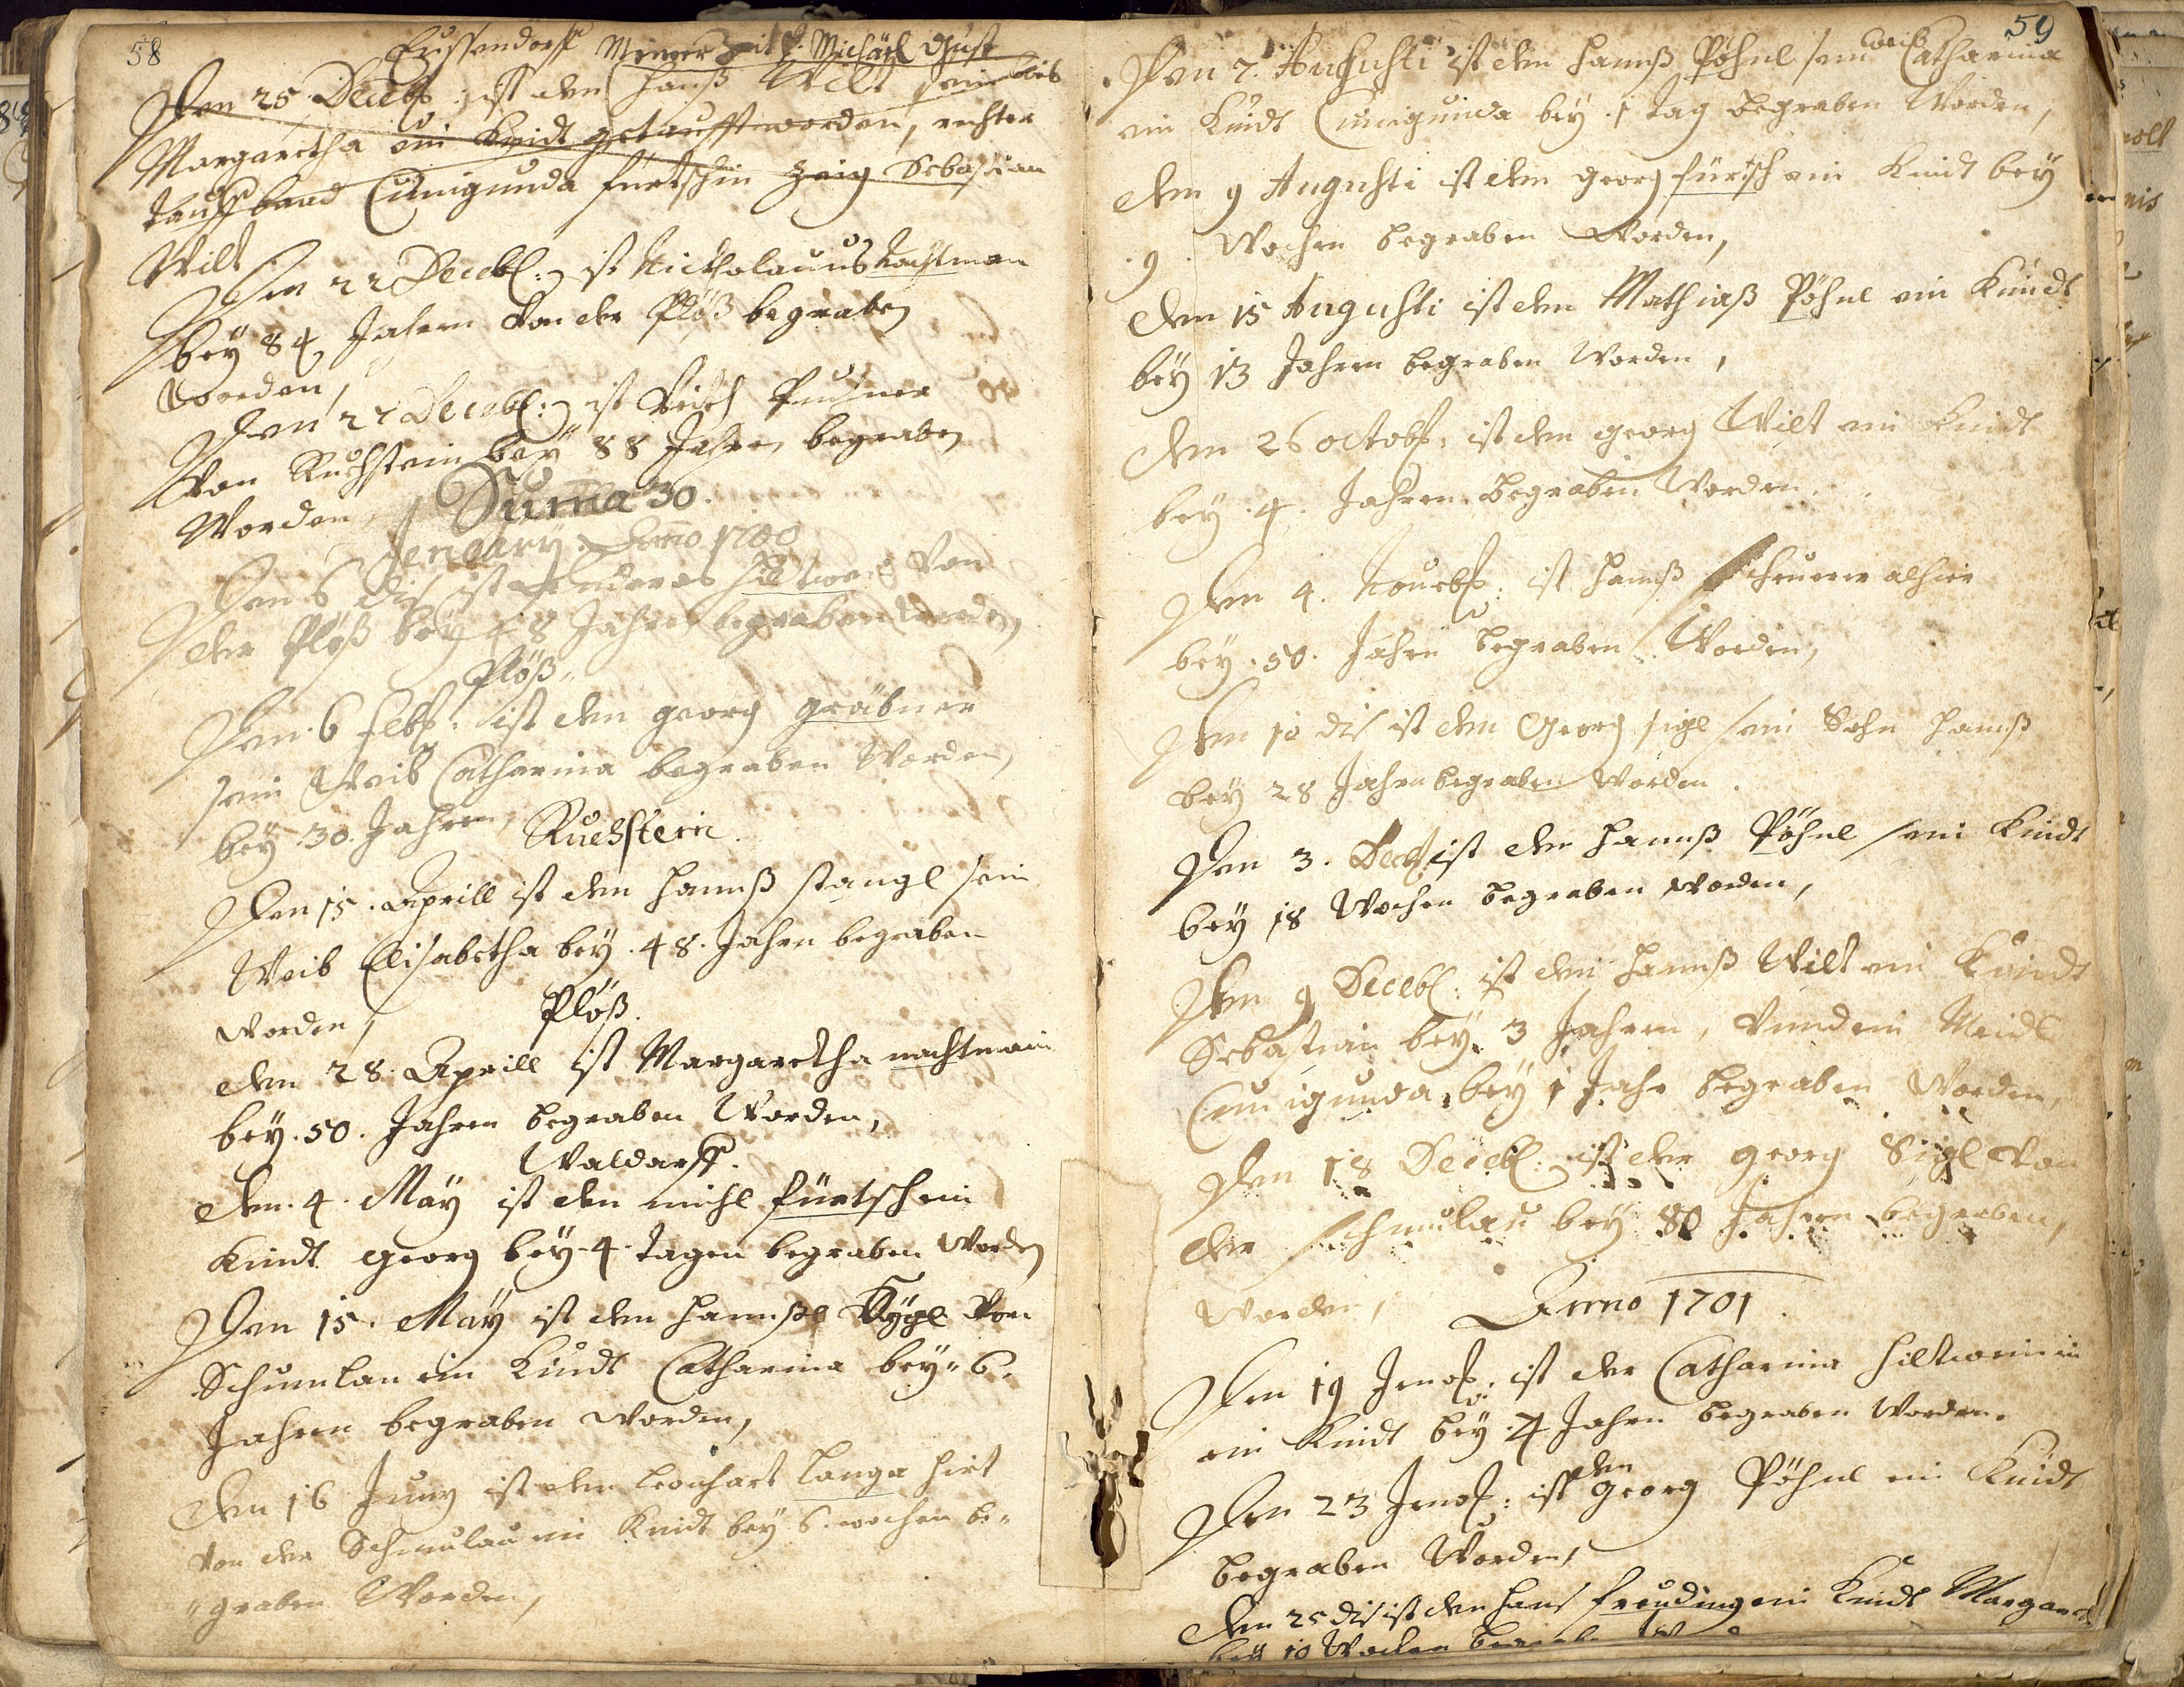 58
Eussendorff Meines Zeit P. Michäel Gust
Den 25 Decebl: ist dem hanß Welt sein Weib
Margaretha ein Kindt getaufft worden, rechter
tauff band Cunigunda fürtschin Zeig Sebastian
Wilt
Den 22 Decebl: ist Nickolauus Nachtman
bey 84 Jahren von der Plöß begraben
worden,
Den 27 Decebl: ist Veith
von Ruchstein bey 88 Jahren begraben
Worden, Suma 30.
Jenuary Anno 1700
Den 6 dis ist Anderas hiltwein von
der Plöß bey 48 Jahren begraben worden,
Plöß.
Den 6 Febr: ist dem georg gräbner
sein Weib Catharina begraben Worden,
bey 30. Jahren, Ruchstein.
Den 15. Aprill ist dem hannß stangl sein
Weib Elisabetha bey .48. Jahrn begraben
worden, Plöß.
den 28. Aprill ist Margaretha nachtmain
bey .50. Jahren begraben Worden,
Waldorff.
den. 4. May ist den michl fürtsch ein
Kindt georg bey 4 tagen begraben worden
Den 15. May ist dem hannßl Sygl von
Schmulau ein Kindt Catharina bey 6.
Jahren begraben worden,
den 16 Juny ist dem Leonhart Langa hirt
von der Schmulau ein Kindt bey 6 wochen be-
graben Worden,
59
Den 7. Augusti ist dem hannß Pöhnl sein weib Catharina
ein Kindt Cunigunda bey .1 tag begraben Worden,
den 9 Augusti ist dem georg fürtsch ein Kindt bey
.9. Wochen begraben Worden,
den 15 Augusti ist dem Mathiaß Pöhnl ein Kindt
bey 13 Jahren begraben Worden,
den 26 octobr: ist dem georg Wilt ein Kindt
bey .4. Jahren begraben Worden.
Den 4. Nouebr: ist hannß alhier
bey .50. Jahrn begraben Worden,
Den 10 dis ist dem Georg sigl sein Sohn hannß
bey 28 Jahrn begraben worden.
Den 3. Decebl ist den hannß Pöhnl sein Kindt
bey 18 Wochen begraben worden,
Den 9 Decebl: ist dem hannß Wilt ein Kindt
Sebastian bey 3 Jahren, vnnd ein Meidl
Cunigunda, bey 1 Jahr begraben Worden,
Den 18 Decebl: ist der georg Sigl von
der schmulau bey 80 Jahren begraben,
Worden, Anno 1701.
Den 19 Jenor: ist der Catharina hiltweinin
ein Kindt bey 4 Jahrn begraben Worden.
Den 23 Jenor: ist dem Georg Pöhnl ein Kindt
begraben Worden,
den 25 dis ist den hans freuding ein Kindt Margaret
bey 10 Wochen